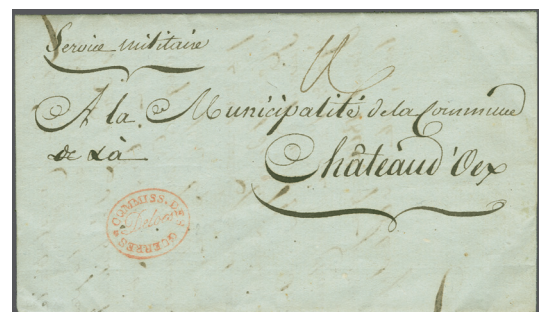 Service militaire
A la Municipalité de la Commune
de là
Château d'Oex
COMMISS. DES GUERRES